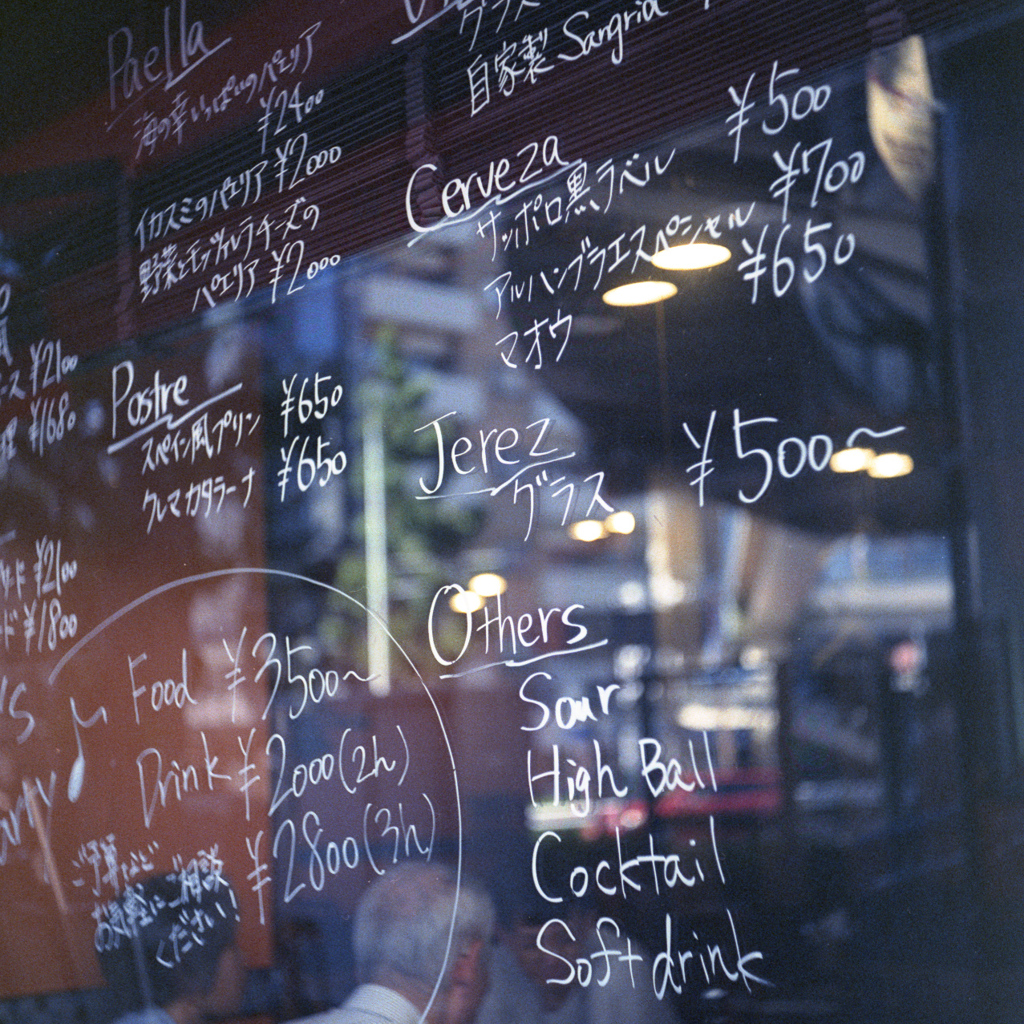 Paella
海の幸いっぱいのパエリア
¥2400
イカスミのパエリア ¥2000
野菜とモッツァレラチーズの
パエリア ¥2000
¥2100
¥1680
Postre
スペイン風プリン ¥650
クレマカタラーナ ¥650
¥2100
¥1800
Food ¥3500~
Drink ¥2000(2h)
¥2800(3h)
ご予算などご
お気軽にご相談
ください!
グラス
自家製 Sangria
Cerveza
サッポロ黒ラベル ¥500
アルハンブラエスペシャル ¥700
マオウ ¥650
Jerez
グラス ¥500~
Others
Sour
High Ball
Cocktail
Soft drink